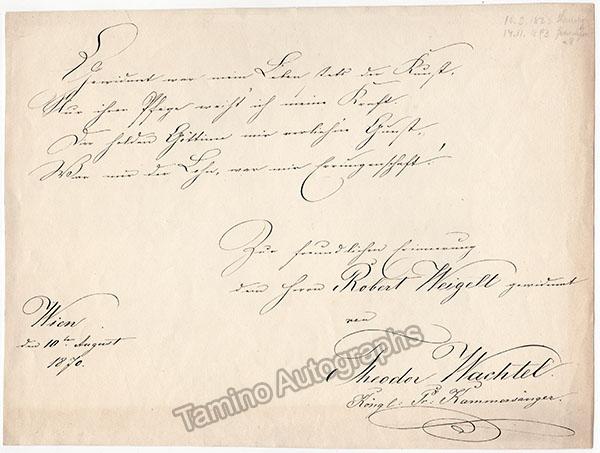 Gewidmet war mein Leben stets der Kunst,
Nur ihrer Pflege weiht' ich meine Kraft.
Der holden Göttinn mir verliehne Gunst,
War mir der Lohn, war mir Errungenschaft!
Zur freundlichen Erinnerung
dem Herrn Robert Weigelt gewidmet
von
Theodor Wachtel.
Königl: Pr: Kammersänger.
Wien
den 10te August
1870.
Tamino Autographs